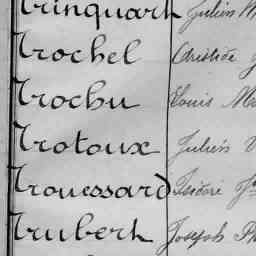 Trinquart Julien
Trochel Aristide
Trochu Louis
Trotoux Julien
Trouessard Isidore
Trubert Joseph